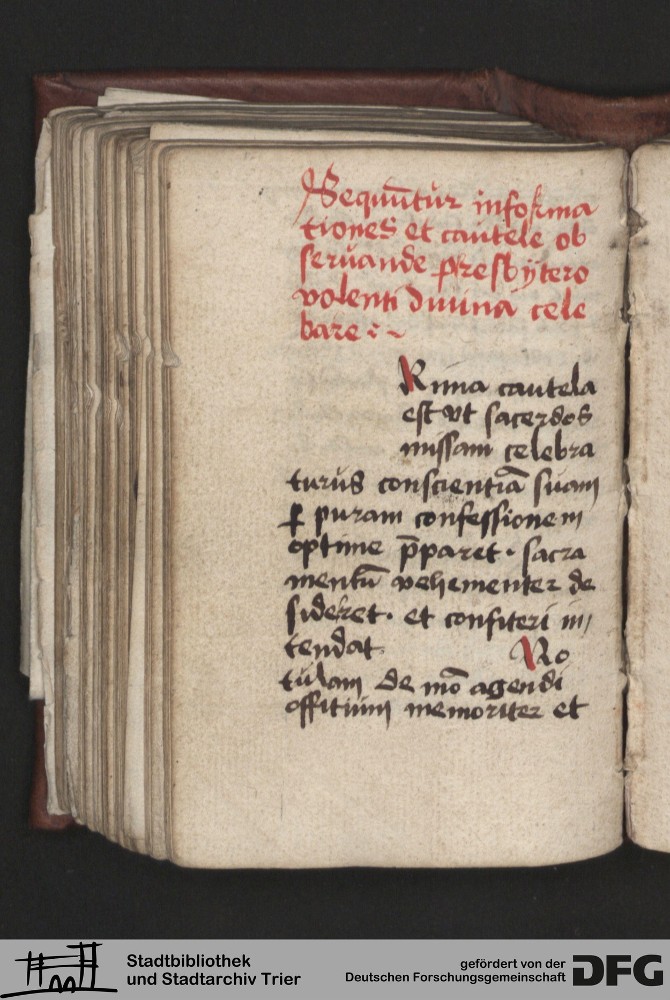 Sequūtur informa
tiones et cautele ob
seruande presbÿtero
volenti diuina cele
bare :~
Rima cautela
est vt sacerdos
missam celebra
turus conscientiā suam
ꝑ puram confessionem
optime p̄paret · sacra
mentū vehementer de
sideret · et confiteri in/
tendat No
tulam de mō agendi
offitium memoriter et
Stadtbibliothek
und Stadtarchiv Trier
gefördert von der
Deutschen Forschungsgemeinschaft
DFG